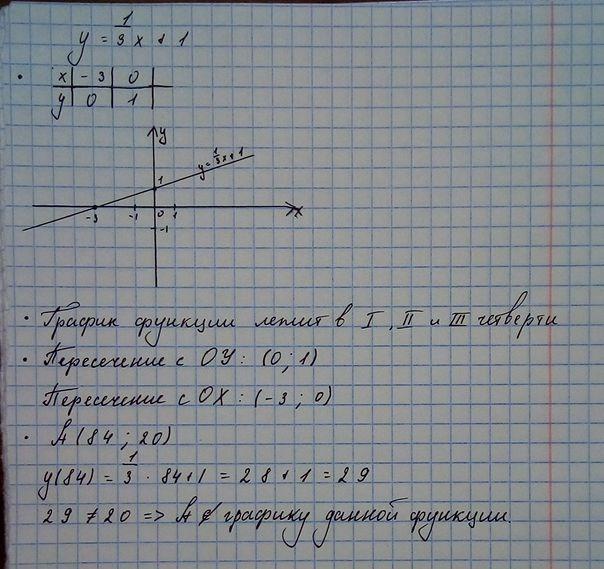 y = 1/3 x + 1
x | -3 | 0
y | 0 | 1
y
y = 1/3 x + 1
1
-3 -1 0 1 x
-1
· График функции лежит в I, II и III четверти
· Пересечение с ОУ: (0; 1)
Пересечение с ОХ: (-3; 0)
· А (84; 20)
y(84) = 1/3 · 84+1 = 28+1 = 29
29 ≠ 20 => А ∉ графику данной функции.